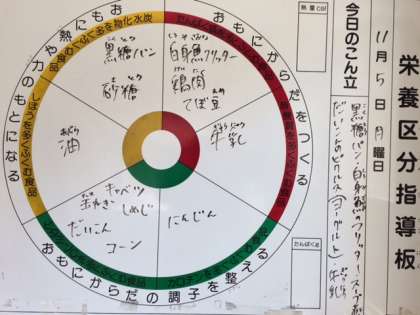 栄養区分指導板
11月5日月曜日
今日のこん立
黒糖パン 白身魚のフリッター スープ煮
だいこんのピクルス (ヨーグルト) 牛乳
熱量cal
たんぱく質
おもにからだをつくる
おもにからだの調子を整える
おもに熱や力のもとになる
炭水化物を多くふくむ食品
しぼうを多くふくむ食品
黒糖パン
砂糖
白身魚フリッター
鶏肉
てぼ豆
油
牛乳
キャベツ
玉ねぎ
しめじ
だいこん
コーン
にんじん